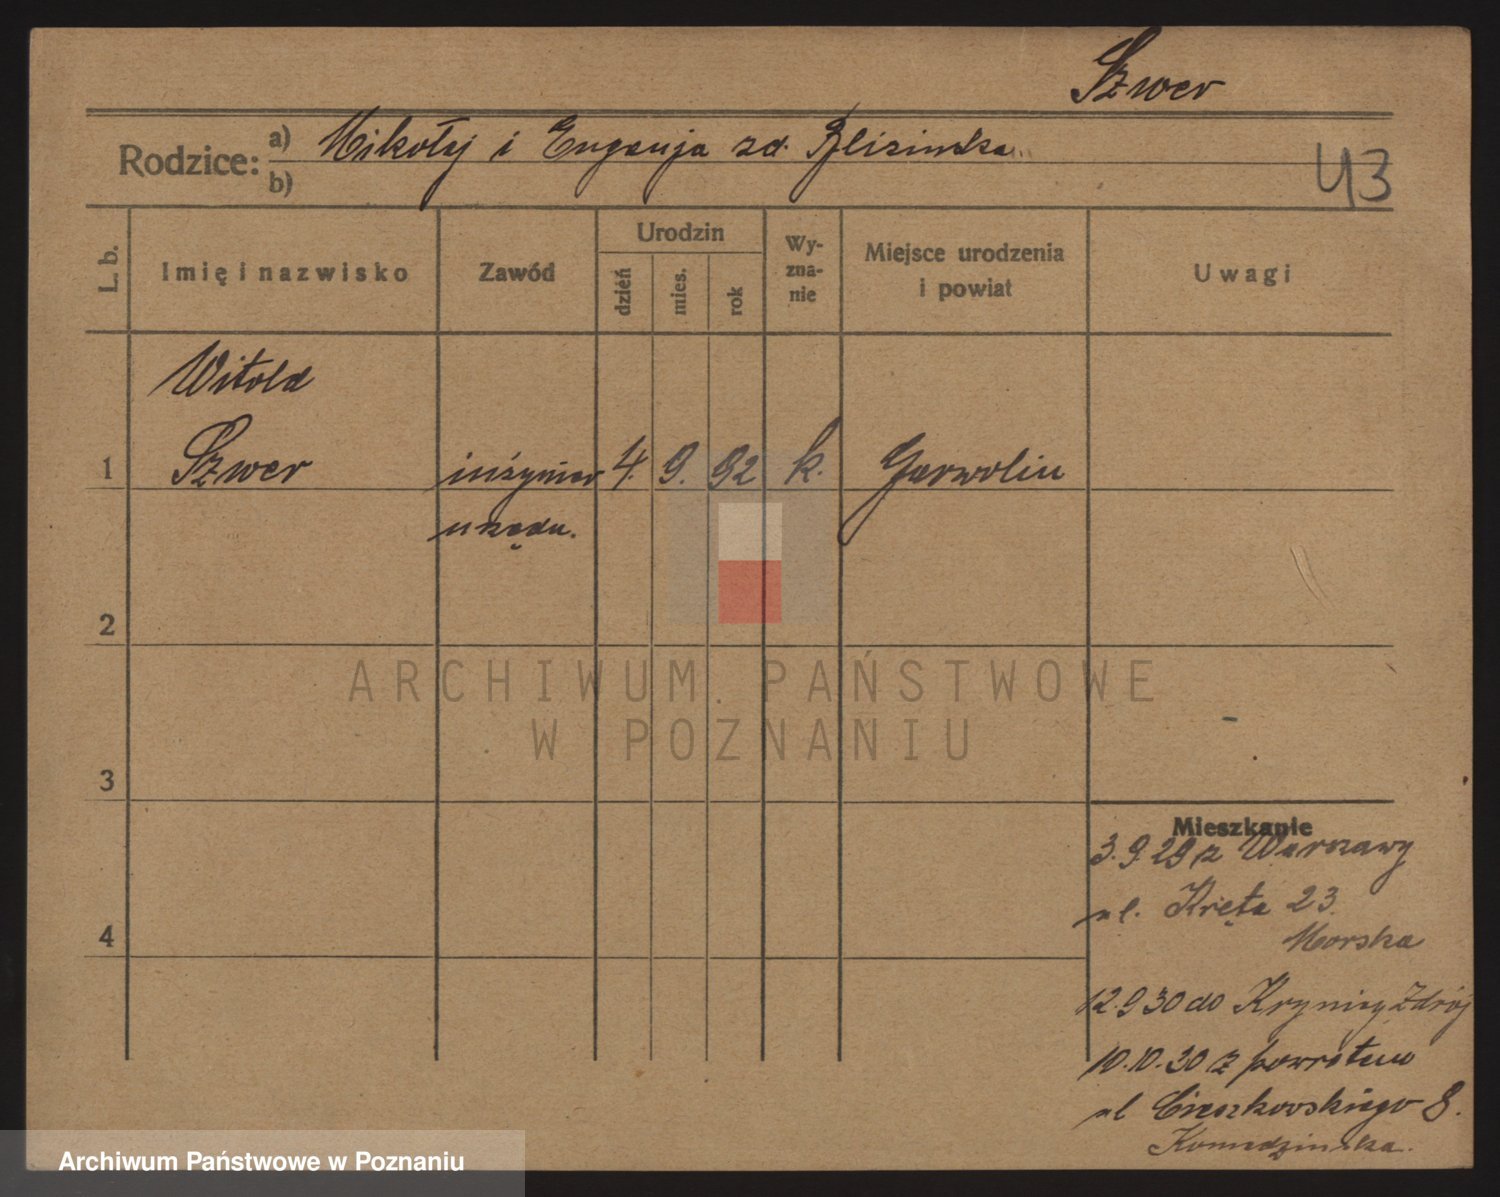 Szwer
Rodzice: a) Mikołaj i Eugenja zd.
b)
43
L. b.
Imię i nazwisko
Zawód
Urodzin
dzień
mies.
rok
Wy-
zna-
nie
Miejsce urodzenia
i powiat
Uwagi
Witold
1 Szwer inżynier 4. 9. 92 k. Garwolin
urzędn.
2
ARCHIWUM PAŃSTWOWE
W POZNANIU
3
Mieszkanie
3.9.29 z Warszawy
ul. Kręta 23.
Morska
4
12.9.30 do Krynicy Zdrój
10.10.30 z powrotem
ul Cieszkowskiego 8.
Archiwum Państwowe w Poznaniu